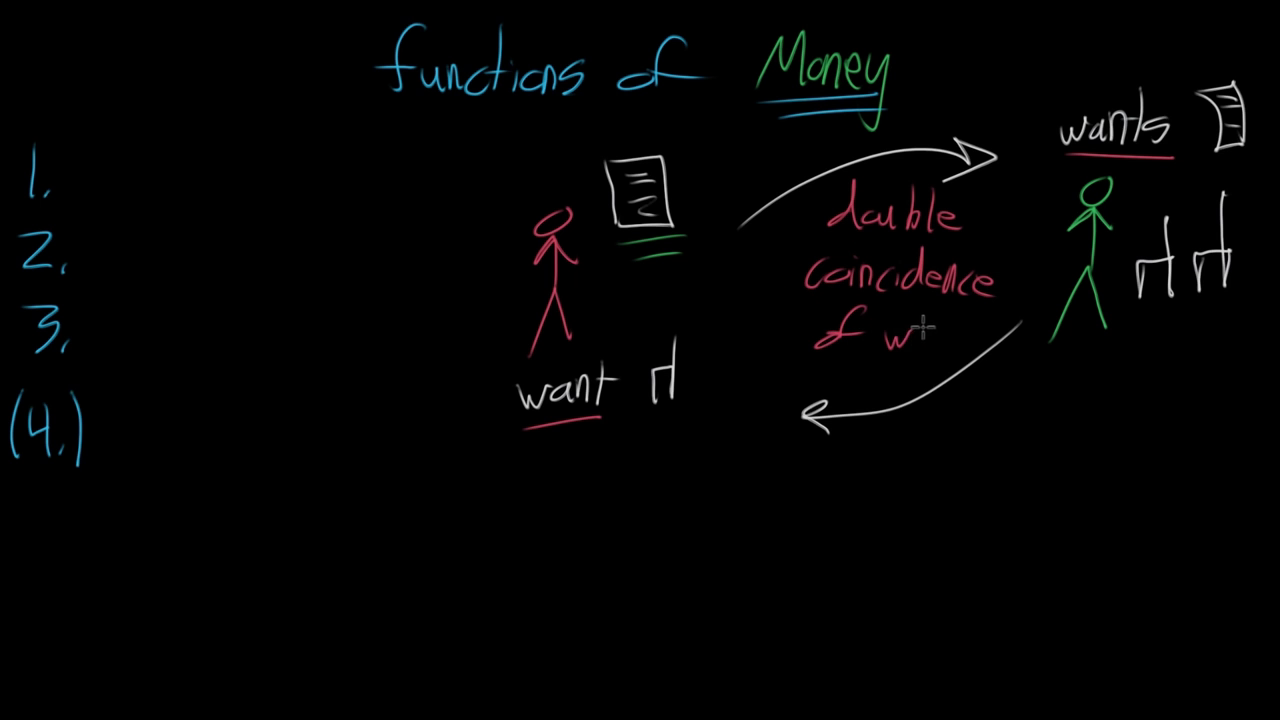 functions of Money
1.
2.
3.
(4.)
want
double
coincidence
of w
wants